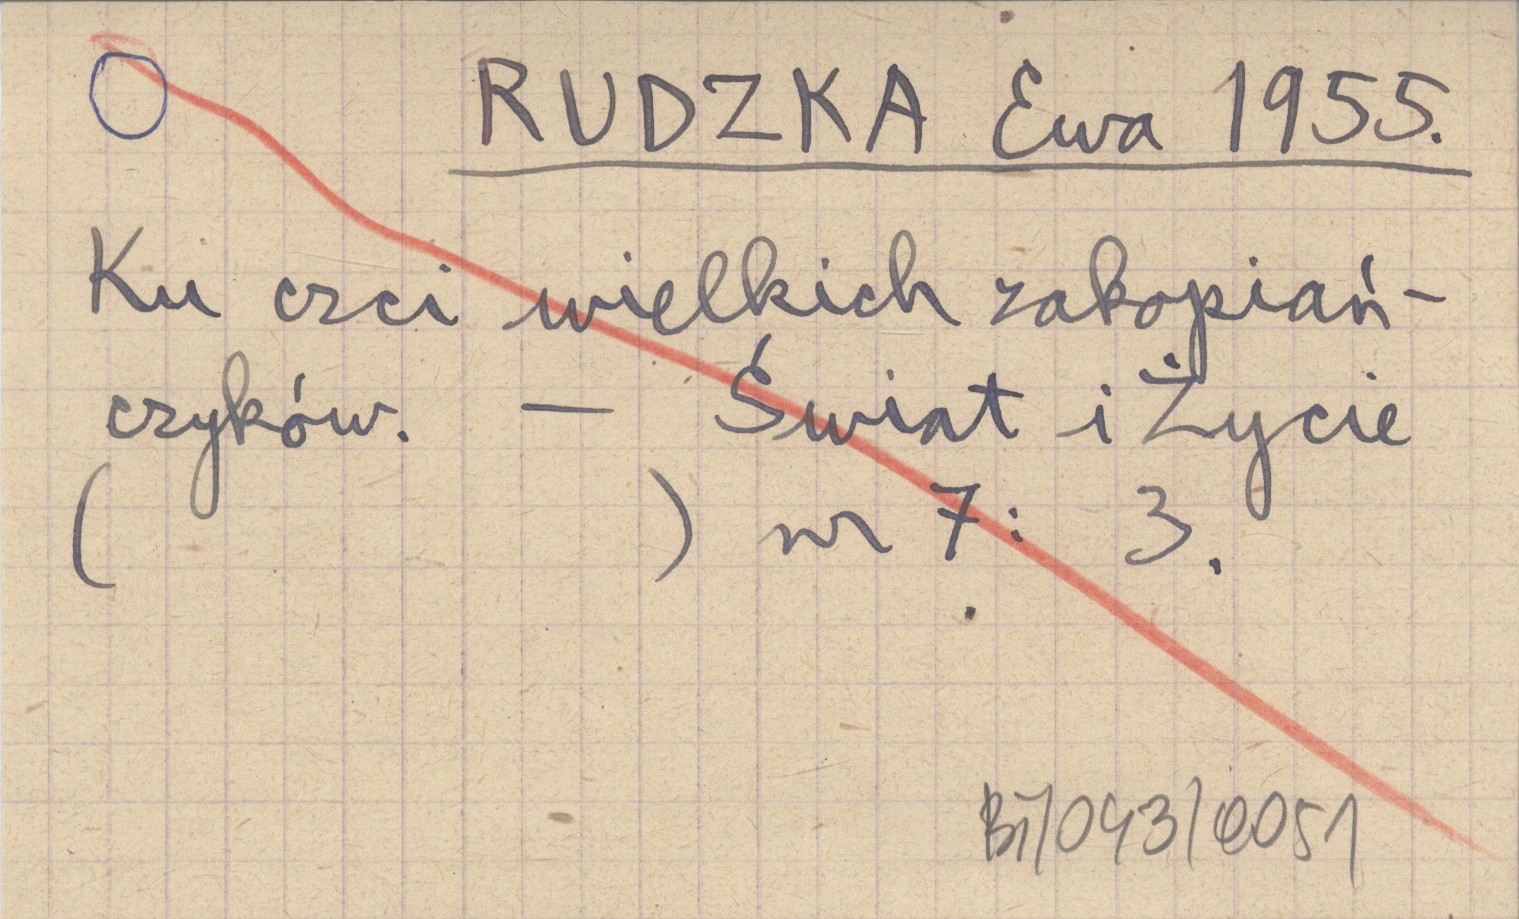 RUDZKA Ewa 1955.
Ku czci wielkich zakopiań-
czyków. — Świat i Życie
( ) nr 7: 3.
Bi/043/0051